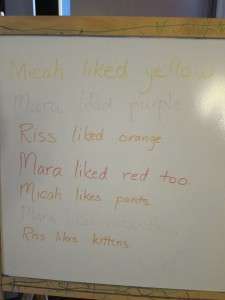 Micah liked yellow
Mara liked purple
Riss liked orange
Mara liked red too.
Micah likes pants
Mara likes
Riss likes kittens